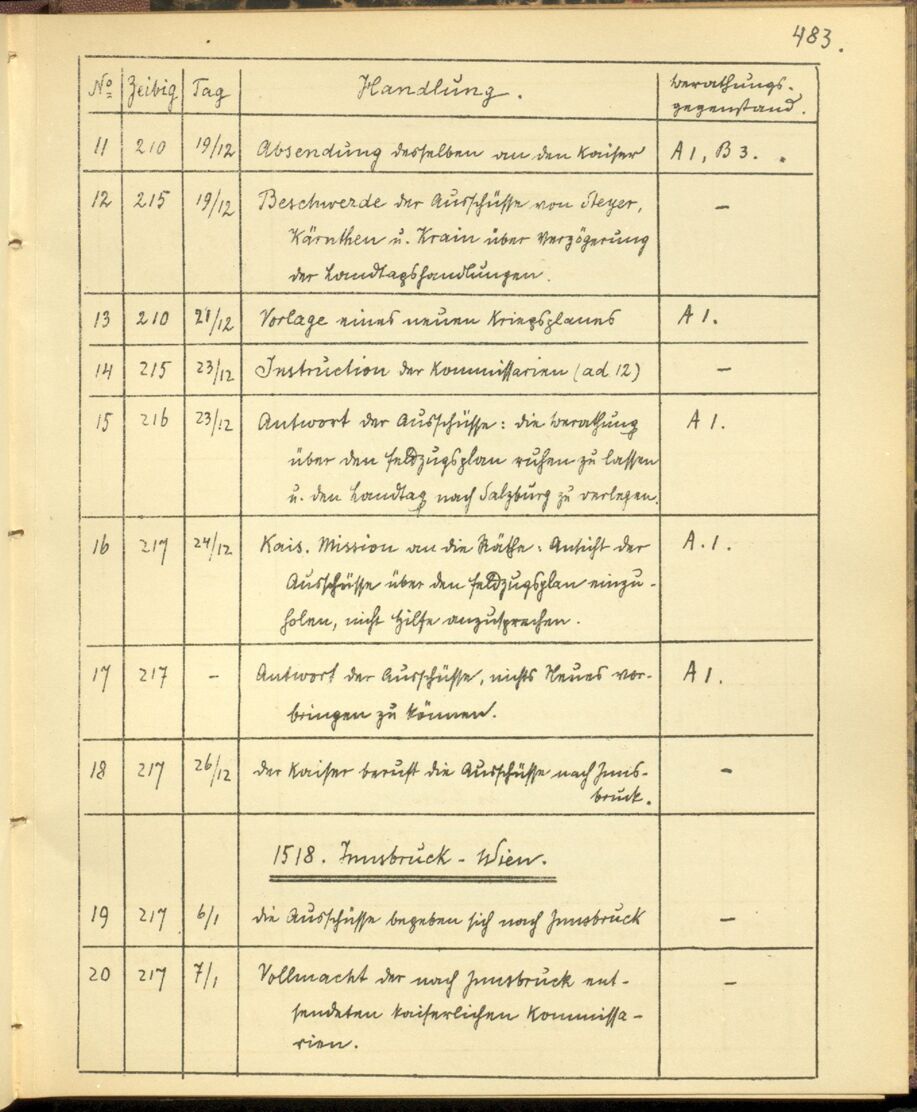 483.
No Zeibig Tag Handlung. Berathungs-
gegenstand.
11 210 19/12 Absendung desselben an den Kaiser A1, B3.
12 215 19/12 Beschwerde der Ausschüsse von Steyer, –
Kärnthen u. Krain über Verzögerung
der Landtagshandlungen.
13 210 21/12 Vorlage eines neuen Kriegsplanes A1.
14 215 23/12 Instruction der Kommissarien (ad 12) –
15 216 23/12 Antwort der Ausschüsse: die Berathung A1.
über den Feldzugsplan ruhen zu lassen
u. den Landtag nach Salzburg zu verlegen.
16 217 24/12 Kais. Mission an die Räthe: Ansicht der A.1.
Ausschüsse über den Feldzugsplan einzu-
holen, nicht Hilfe anzusprechen.
17 217 – Antwort der Ausschüsse, nichts Neues vor- A1.
bringen zu können.
18 217 26/12 der Kaiser beruft die Ausschüsse nach Inns- –
bruck.
1518. Innsbruck - Wien.
19 217 6/1 die Ausschüsse begeben sich nach Innsbruck –
20 217 7/1 Vollmacht der nach Innsbruck ent- –
sendeten kaiserlichen Kommissa-
rien.